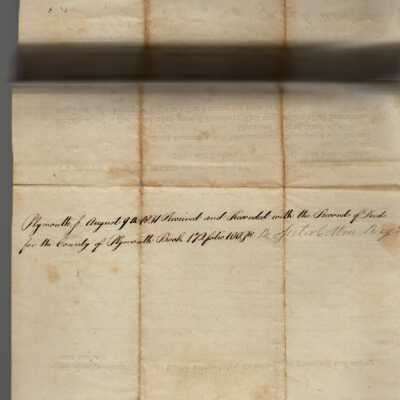 Plymouth ſs August 9th 1831 Received and Recorded with the Records of Deeds
for the County of Plymouth Book 172 folio 166 Pr